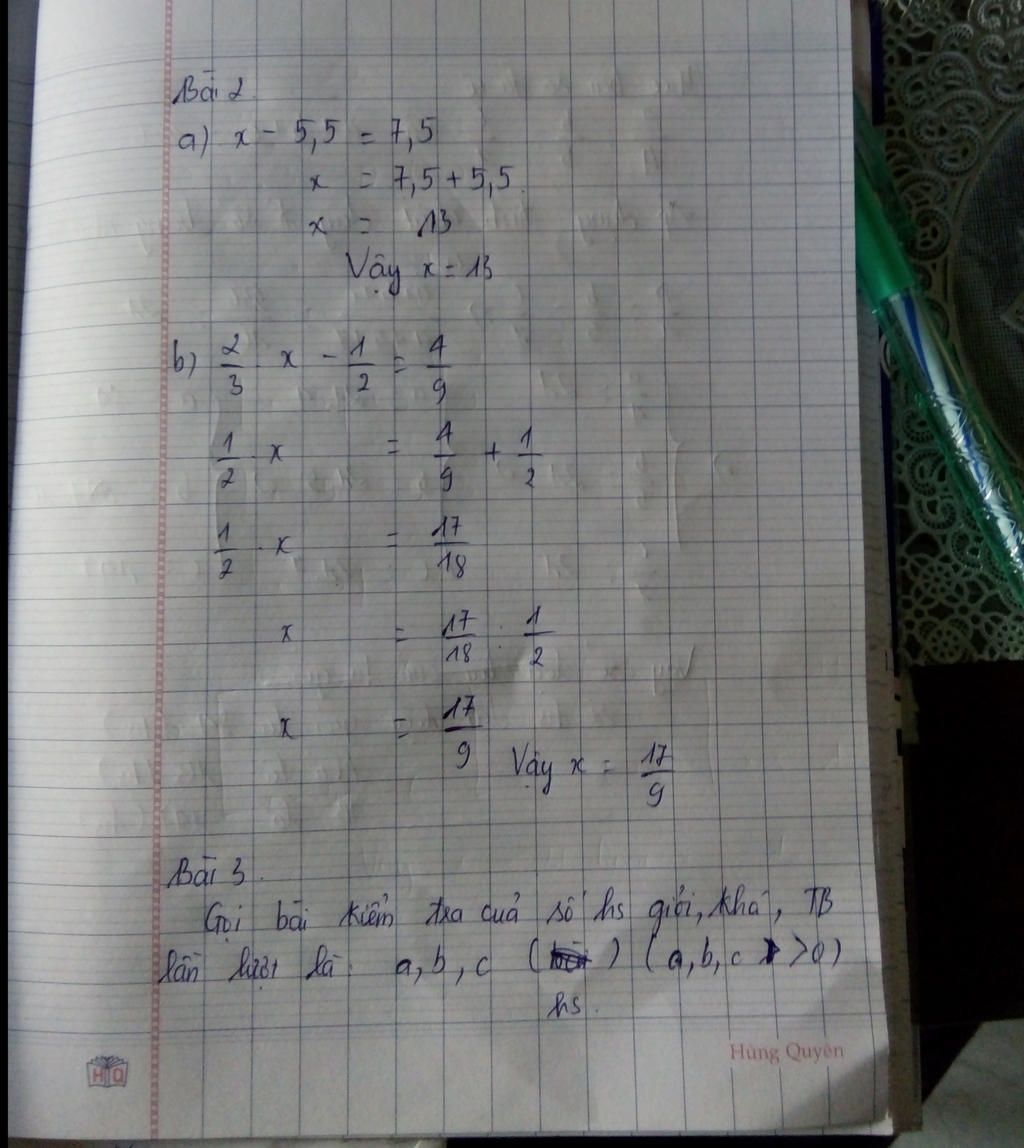 Bài 2.
a) x - 5,5 = 7,5
x = 7,5 + 5,5
x = 13
Vậy x = 13
b) 2/3 . x - 1/2 = 4/9
1/2 . x = 4/9 + 1/2
1/2 . x = 17/18
x = 17/18 : 1/2
x = 17/9
Vậy x = 17/9
Bài 3.
Gọi bài kiểm tra cuả số hs giỏi, khá, TB
lần lượt là: a, b, c ( ) (a, b, c > 0)
hs.
Hùng Quyên
HQ